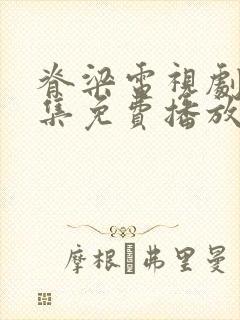 脊梁電視劇
集免費播放
摩根·弗里曼